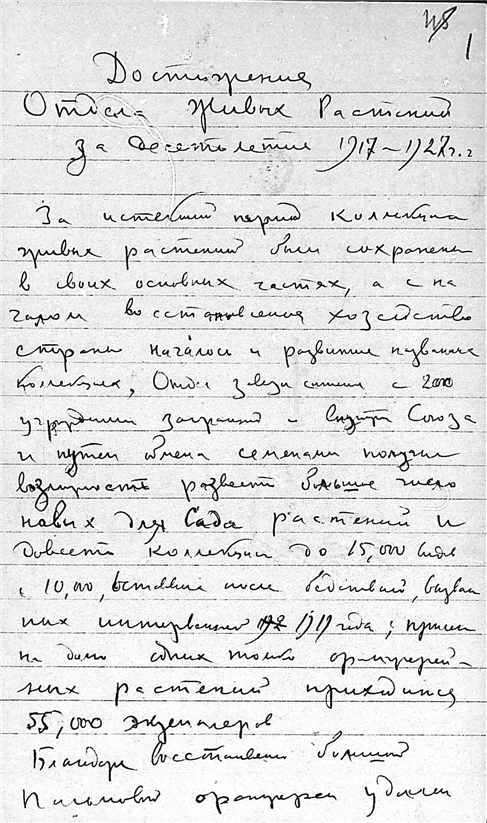 118
1
Достижения
Отдела Живых Растений
за десятилетие 1917–1927 г.г
За истекший период коллекции
живых растений были сохранены
в своих основных частях, а с на
чалом восстановления хозяйства
страны началось и развитие
коллекции, Отдел с 2000
учреждениями заграницей и внутри Союза
и путем обмена семенами получил
возможность развести большее число
новых для Сада растений и
довести коллекции до 15,000 видов
с 10,000, оставшихся после бедствий, вызван
ных интервенцией 1919 года; причем
на долю одних только оранжерей-
ных растений приходится
55,000 экземпляров
Благодаря восстановлению большой
Пальмовой оранжереи удалось